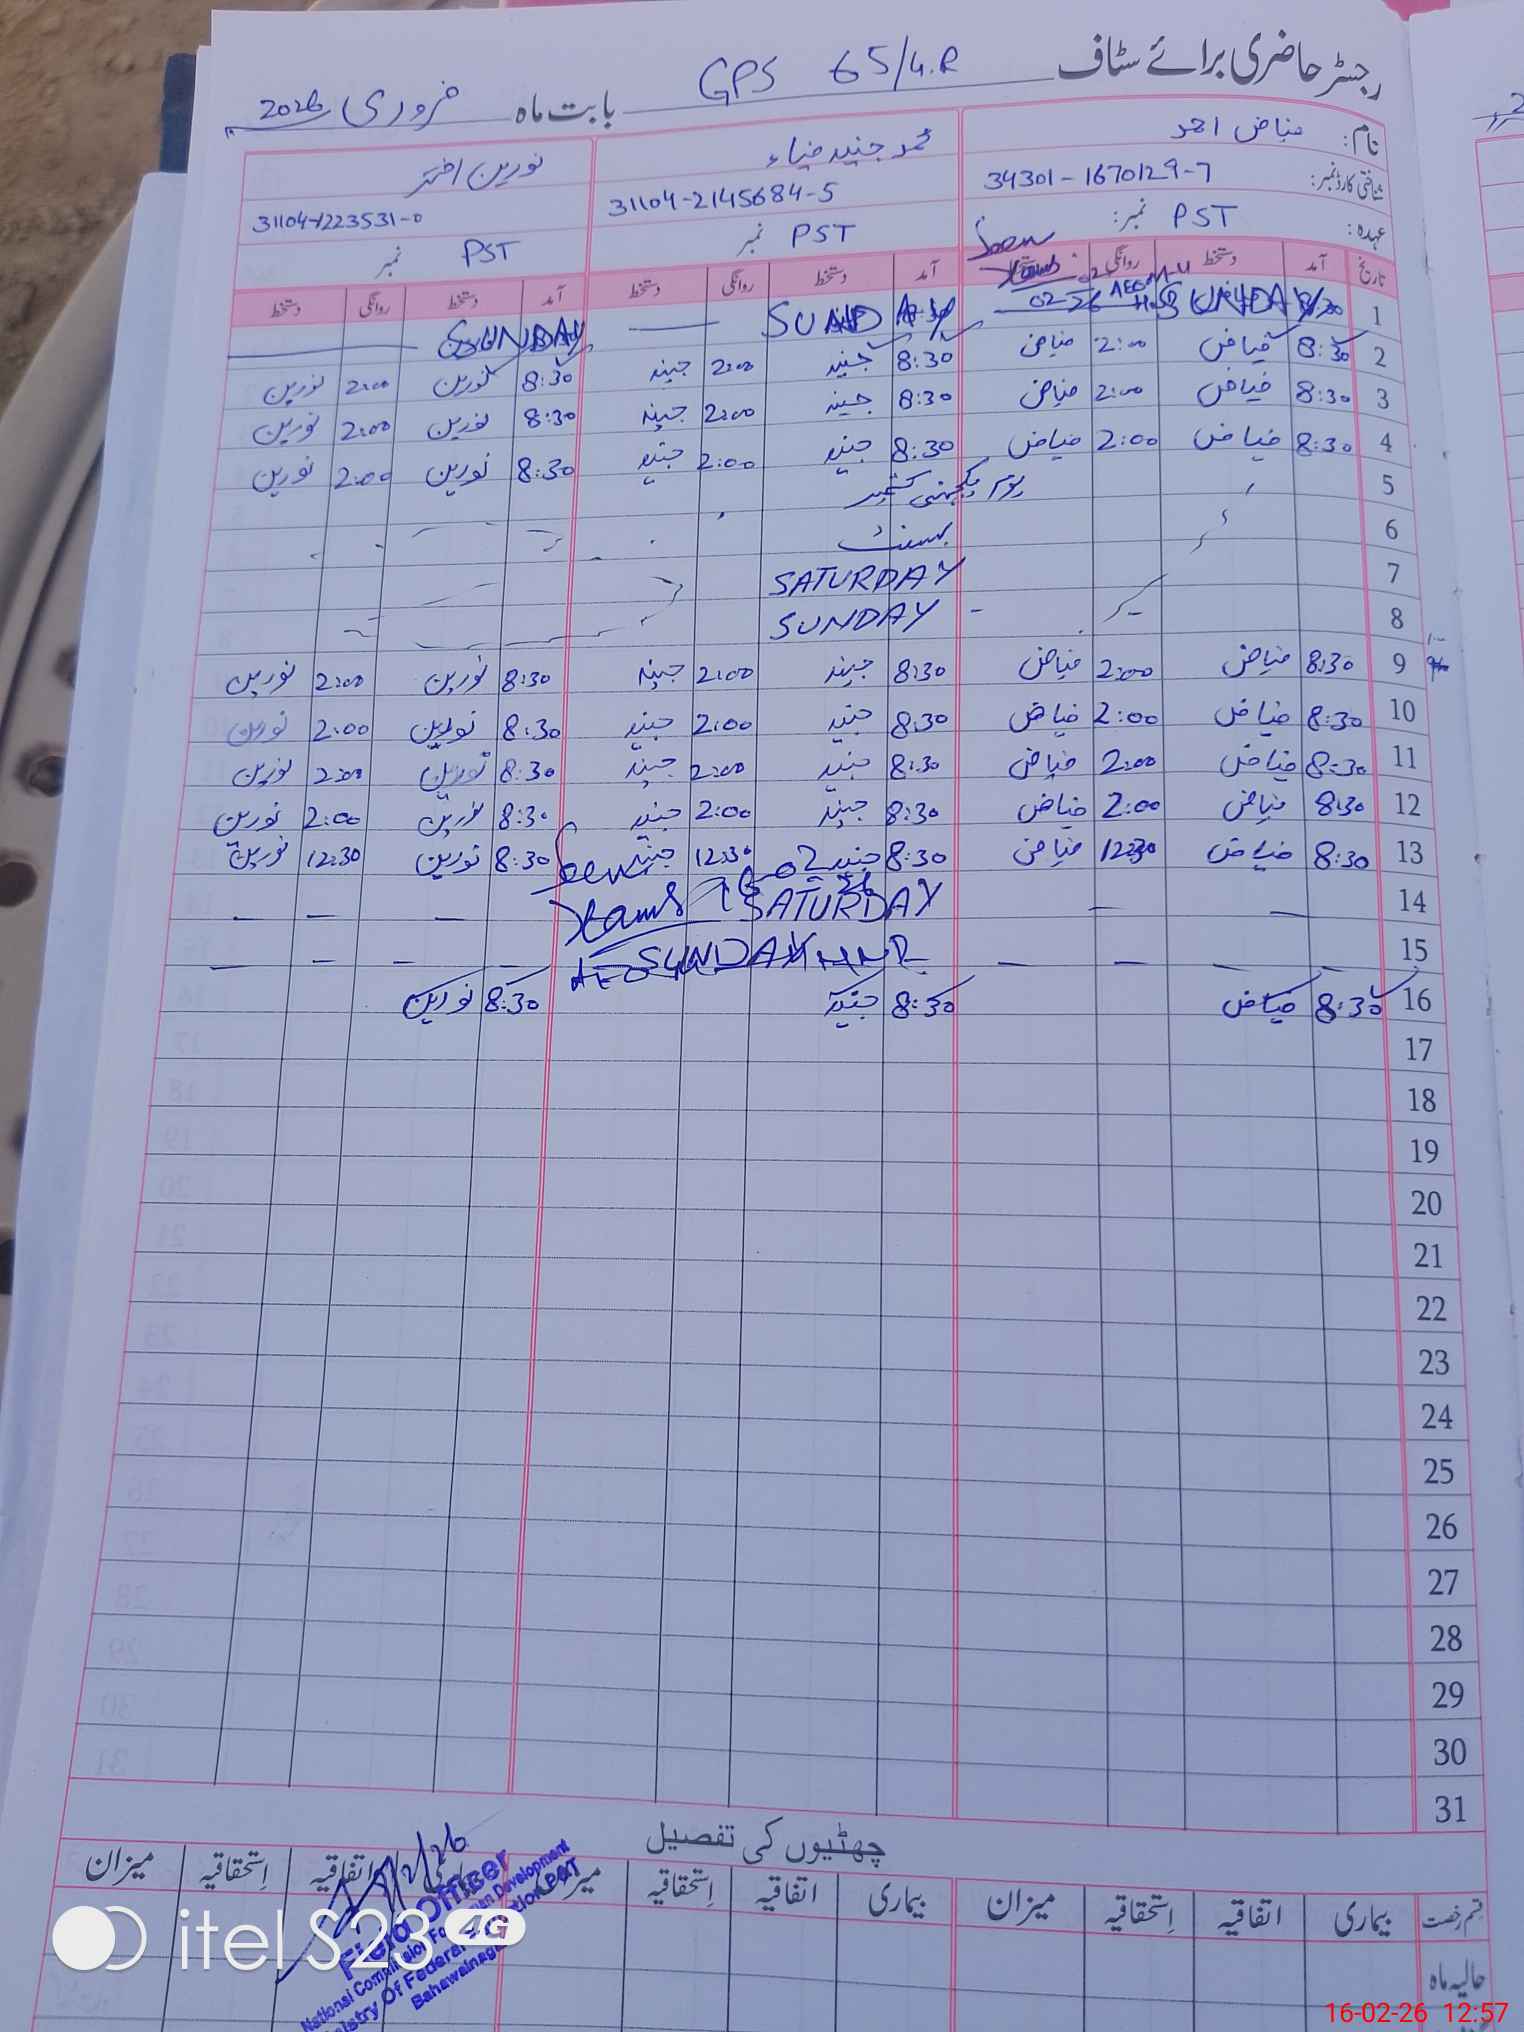 رجسٹر حاضری برائے سٹاف GPS 65/4.R بابت ماہ فروری 2026
نام: فیاض احمد محمد جنید ضیاء نورین اختر
شناختی کارڈ نمبر: 34301-1670129-7 31104-2145684-5 31104-1223531-0
عہدہ: PST نمبر: PST نمبر PST نمبر
Seen
تاریخ آمد دستخط روانگی آمد دستخط روانگی دستخط آمد دستخط روانگی دستخط
1 SUNDAY SUNDAY SUNDAY
2 8:30 فیاض 2:00 فیاض 8:30 جنید 2:00 جنید 8:30 نورین 2:00 نورین
3 8:30 فیاض 2:00 فیاض 8:30 جنید 2:00 جنید 8:30 نورین 2:00 نورین
4 8:30 فیاض 2:00 فیاض 8:30 جنید 2:00 جنید 8:30 نورین 2:00 نورین
5 یوم یکجہتی کشمیر
6 بسنت
7 SATURDAY
8 SUNDAY
9 8:30 فیاض 2:00 فیاض 8:30 جنید 2:00 جنید 8:30 نورین 2:00 نورین
10 8:30 فیاض 2:00 فیاض 8:30 جنید 2:00 جنید 8:30 نورین 2:00 نورین
11 8:30 فیاض 2:00 فیاض 8:30 جنید 2:00 جنید 8:30 نورین 2:00 نورین
12 8:30 فیاض 2:00 فیاض 8:30 جنید 2:00 جنید 8:30 نورین 2:00 نورین
13 8:30 فیاض 12:30 فیاض 8:30 جنید 12:30 جنید 8:30 نورین 12:30 نورین
Seen
14 SATURDAY
15 SUNDAY
16 8:30 فیاض 8:30 جنید 8:30 نورین
17
18
19
20
21
22
23
24
25
26
27
28
29
30
31
چھٹیوں کی تفصیل
قسم رخصت بیماری اتفاقیہ اِستحقاقیہ میزان بیماری اتفاقیہ اِستحقاقیہ میزان بیماری اتفاقیہ اِستحقاقیہ میزان
حالیہ ماہ
Field Officer
National Commission For Human Development
Ministry Of Federal Education P&T
Bahawalnagar
itel S23 4G
16-02-26 12:57